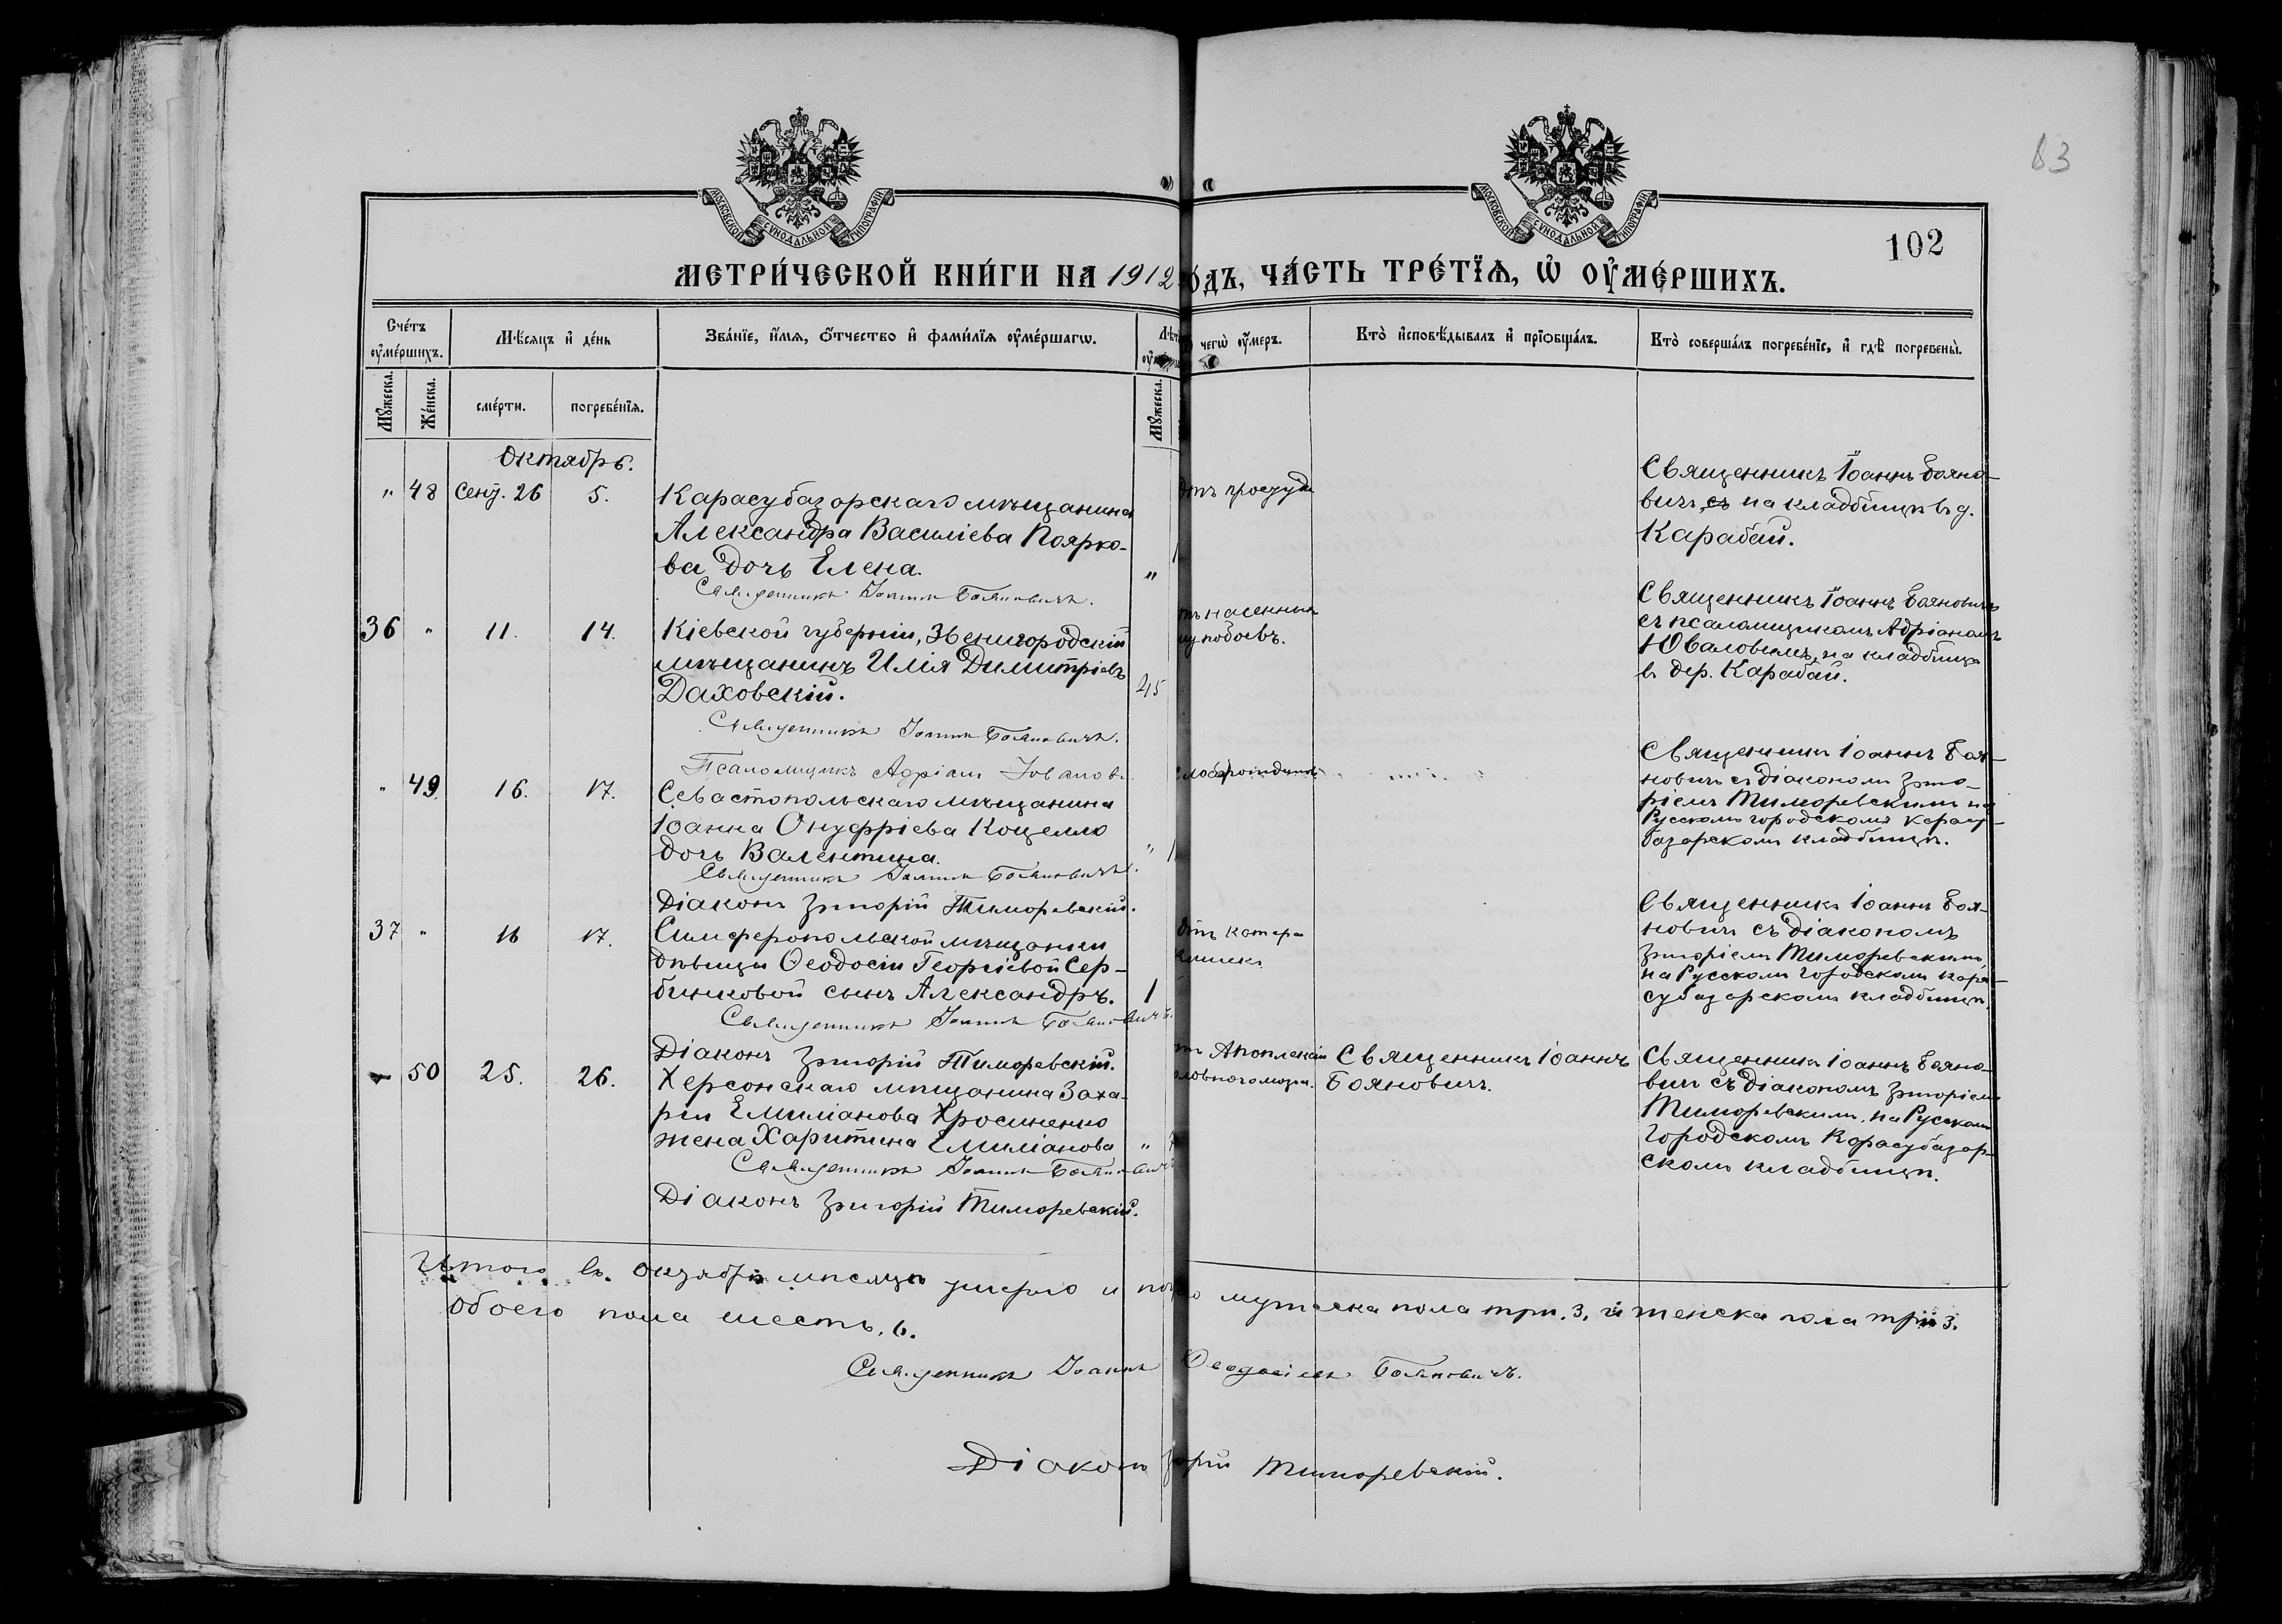 83
МОСКОВСКОЙ СУНОДАЛЬНОЙ ТИПОГРАФІИ
МОСКОВСКОЙ СУНОДАЛЬНОЙ ТИПОГРАФІИ
102
МЕТРИ́ЧЕСКОЙ КНИ́ГИ НА 1912 ГО́ДЪ, ЧА́СТЬ ТРЕ́ТЇѦ, Ѡ҆ ОУ҆МЕ́РШИХЪ.
Сче́тъ оу҆ме́ршихъ.
Мѣ́сяцъ и҆ де́нь
Зва́нїе, и҆́мѧ, ѻ҆́тчество и҆ фами́лїѧ оу҆ме́ршагѡ.
Лѣт
чегѡ̀ оу҆́меръ.
Кто̀ и҆сповѣ́дывалъ и҆ прїѻбща́лъ.
Кто̀ соверша́лъ погребе́нїе, и҆ гдѣ̀ погребены̀.
Му́жеска.
Же́нска.
сме́рти.
погребе́нїѧ.
Му́жеска.
Октябрь.
" 48 Сент. 26 5.
Карасубазарскаго мѣщанина
Александра Василіева Поярко-
ва дочь Елена.
"
Священникъ Іоаннъ Бояновичъ.
отъ простуды
Священникъ Іоаннъ Бояно-
вичъ, на кладбищѣ въ д.
Карабай.
36 " 11. 14.
Кіевской губерніи, Звенигородскій
мѣщанинъ Илія Димитріевъ
Даховскій.
45
Священникъ Іоаннъ Бояновичъ.
Псаломщикъ Адріанъ Юваловъ
побоевъ.
Священникъ Іоаннъ Бояновичъ
съ псаломщикомъ Адріаномъ
Юваловымъ, на кладбищѣ
в дер. Карабай.
" 49. 16. 17.
Севастопольскаго мѣщанина
Іоанна Онуфріева Коцелло
дочь Валентина.
"
Священникъ Іоаннъ Бояновичъ.
Діаконъ Григорій Тиморевскій.
Священникъ Іоаннъ Боя-
новичъ съ діакономъ Григо-
ріемъ Тиморевскимъ на
Русскомъ городскомъ Карасу-
базарскомъ кладбищѣ.
37 " 16 17.
Симферопольской мѣщанки
дѣвицы Ѳеодосіи Георгіевой Сер-
бинковой сынъ Александръ.
1
Священникъ Іоаннъ Бояновичъ.
Діаконъ Григорій Тиморевскій.
отъ катара
кишекъ
Священникъ Іоаннъ Боя-
новичъ съ діакономъ
Григоріемъ Тиморевскимъ,
на Русскомъ городскомъ Кара-
субазарскомъ кладбищѣ.
50 25. 26.
Херсонскаго мѣщанина Заха-
ріи Емиліанова Хросиненко
жена Харитина Емиліанова
"
Священникъ Іоаннъ Бояновичъ
Діаконъ Григорій Тиморевскій.
Апоплексіи
головного мозга.
Священникъ Іоаннъ
Бояновичъ.
Священникъ Іоаннъ Бояно-
вичъ съ діакономъ Григоріемъ
Тиморевскимъ, на Русскомъ
городскомъ Карасубазар-
скомъ кладбищѣ.
Итого въ Октябрѣ мѣсяцѣ умерло и мужеска пола три. 3. и женска пола три 3.
обоего пола шесть. 6.
Священникъ Іоаннъ Ѳеодосіевъ Бояновичъ.
Діаконъ Тиморевскій.